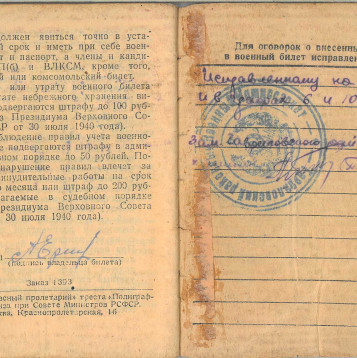 должен явиться точно в уста-
срок и иметь при себе воен-
и паспорт, а члены и канди-
П(б) и ВЛКСМ, кроме того,
й или комсомольский билет.
или утрату военного билета
тате небрежного хранения ви-
одвергаются штрафу до 100 руб-
Президиума Верховного Со-
Р от 30 июля 1940 года).
блюдение правил учета военно-
не подвергаются штрафу в адми-
ном порядке до 50 рублей. По-
нарушение правил влечет за
инудительные работы на срок
о месяца или штраф до 200 руб-
агаемые в судебном порядке
резидиума Верховного Совета
30 июля 1940 года).
(подпись владельца билета)
Заказ 1393
асный пролетарий» треста «Полиграф-
при Совете Министров РСФСР.
ква, Краснопролетарская, 16
Для оговорок о внесенны
в военный билет исправлен
Исправленному на
и в графах 6 и 10
Зам.